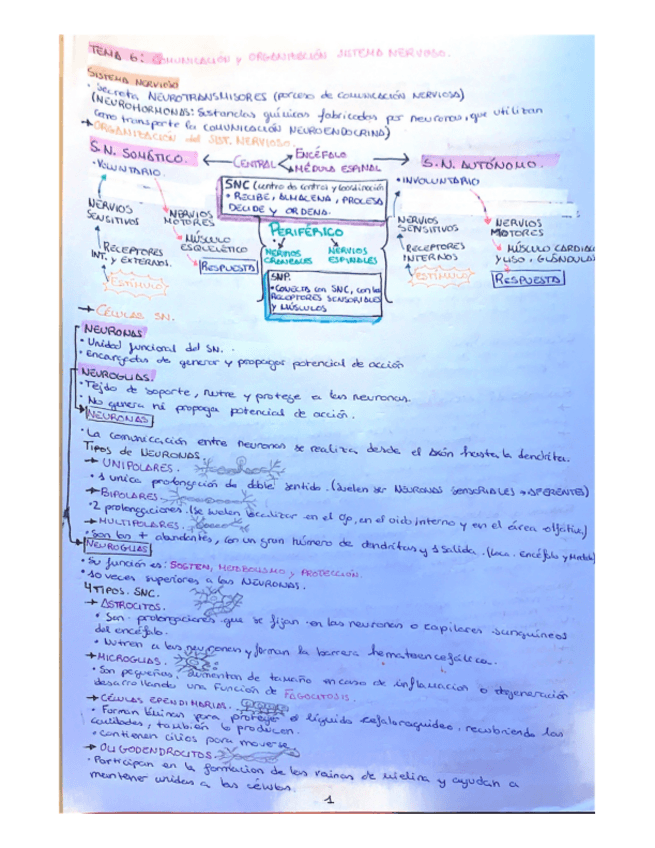 TEMA 6: COMUNICACIÓN y ORGANIZACIÓN SISTEMA NERVIOSO.
SISTEMA NERVIOSO
• Secreta NEUROTRANSMISORES (proceso de COMUNICACIÓN NERVIOSA)
(NEUROHORMONAS: Sustancias químicas fabricadas por neuronas, que utilizan
como transporte la COMUNICACIÓN NEUROENDOCRINA)
→ ORGANIZACIÓN del SIST. NERVIOSO.
S.N. SOMÁTICO. ← CENTRAL ENCÉFALO MÉDULA ESPINAL → S.N. AUTÓNOMO.
• VOLUNTARIO.
NERVIOS SENSITIVOS
NERVIOS MOTORES
RECEPTORES INT. y EXTERNOS.
MÚSCULO ESQUELÉTICO
ESTÍMULO
RESPUESTA
SNC (centro de control y coordinación
• RECIBE, ALMACENA, PROCESA
DECIDE Y ORDENA.
PERIFÉRICO
NERVIOS CRANEALES
NERVIOS ESPINALES
SNP.
• CONECTA con SNC, con los
RECEPTORES SENSORIALES
Y MÚSCULOS
• INVOLUNTARIO
NERVIOS SENSITIVOS
NERVIOS MOTORES
RECEPTORES INTERNOS
MÚSCULO CARDIAC
Y LISO, GLÁNDULAS
ESTÍMULO
RESPUESTA
→ CÉLULAS SN.
NEURONAS
• Unidad funcional del SN.
• Encargadas de generar y propagar potencial de acción
NEUROGLIAS.
• Tejido de soporte, nutre y protege a las neuronas.
• No genera ni propaga potencial de acción.
NEURONAS
• La comunicación entre neuronas se realiza desde el axón hasta la dendrita.
Tipos de NEURONAS
→ UNIPOLARES.
• 1 unica prolongación de doble sentido. (Suelen ser NEURONAS SENSORIALES → AFERENTES)
→ BIPOLARES
• 2 prolongaciones. (Se suelen localizar en el ojo, en el oido interno y en el área olfativa)
→ MULTIPOLARES.
• Son las + abundantes, con un gran número de dendritas y 1 salida. (Loca. Encéfalo y Medula)
NEUROGLIAS
• Su función es: SOSTEN, METABOLISMO y PROTECCIÓN.
• 10 veces superiores a las NEURONAS.
4 TIPOS. SNC.
→ ASTROCITOS.
• Son prolongaciones que se fijan en las neuronas o capilares sanguineos
del encéfalo.
• Nutren a las neuronas y forman la barrera hematoencefálica.
→ MICROGLIAS.
• Son pequeñas, aumentan de tamaño en caso de inflamación o degeneración
desarrollando una función de FAGOCITOSIS.
→ CÉLULAS EPENDIMARIAS.
• Forman láminas para proteger el líquido cefalorraquideo, recubriendo las
cavidades, también lo producen.
• Contienen cilios para moverse.
→ OLIGODENDROCITOS.
• Participan en la formación de las vainas de mielina y ayudan a
mantener unidas a las células.
1